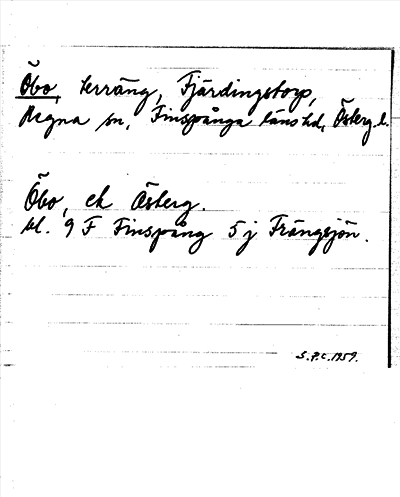 Öbo, terräng, Fjärdingstorp,
Regna sn, Finspånga läns hd, Österg. l.
Öbo, ek Österg.
bl. 9 F Finspång 5 j Frängsjön.
S.P.C. 1959.